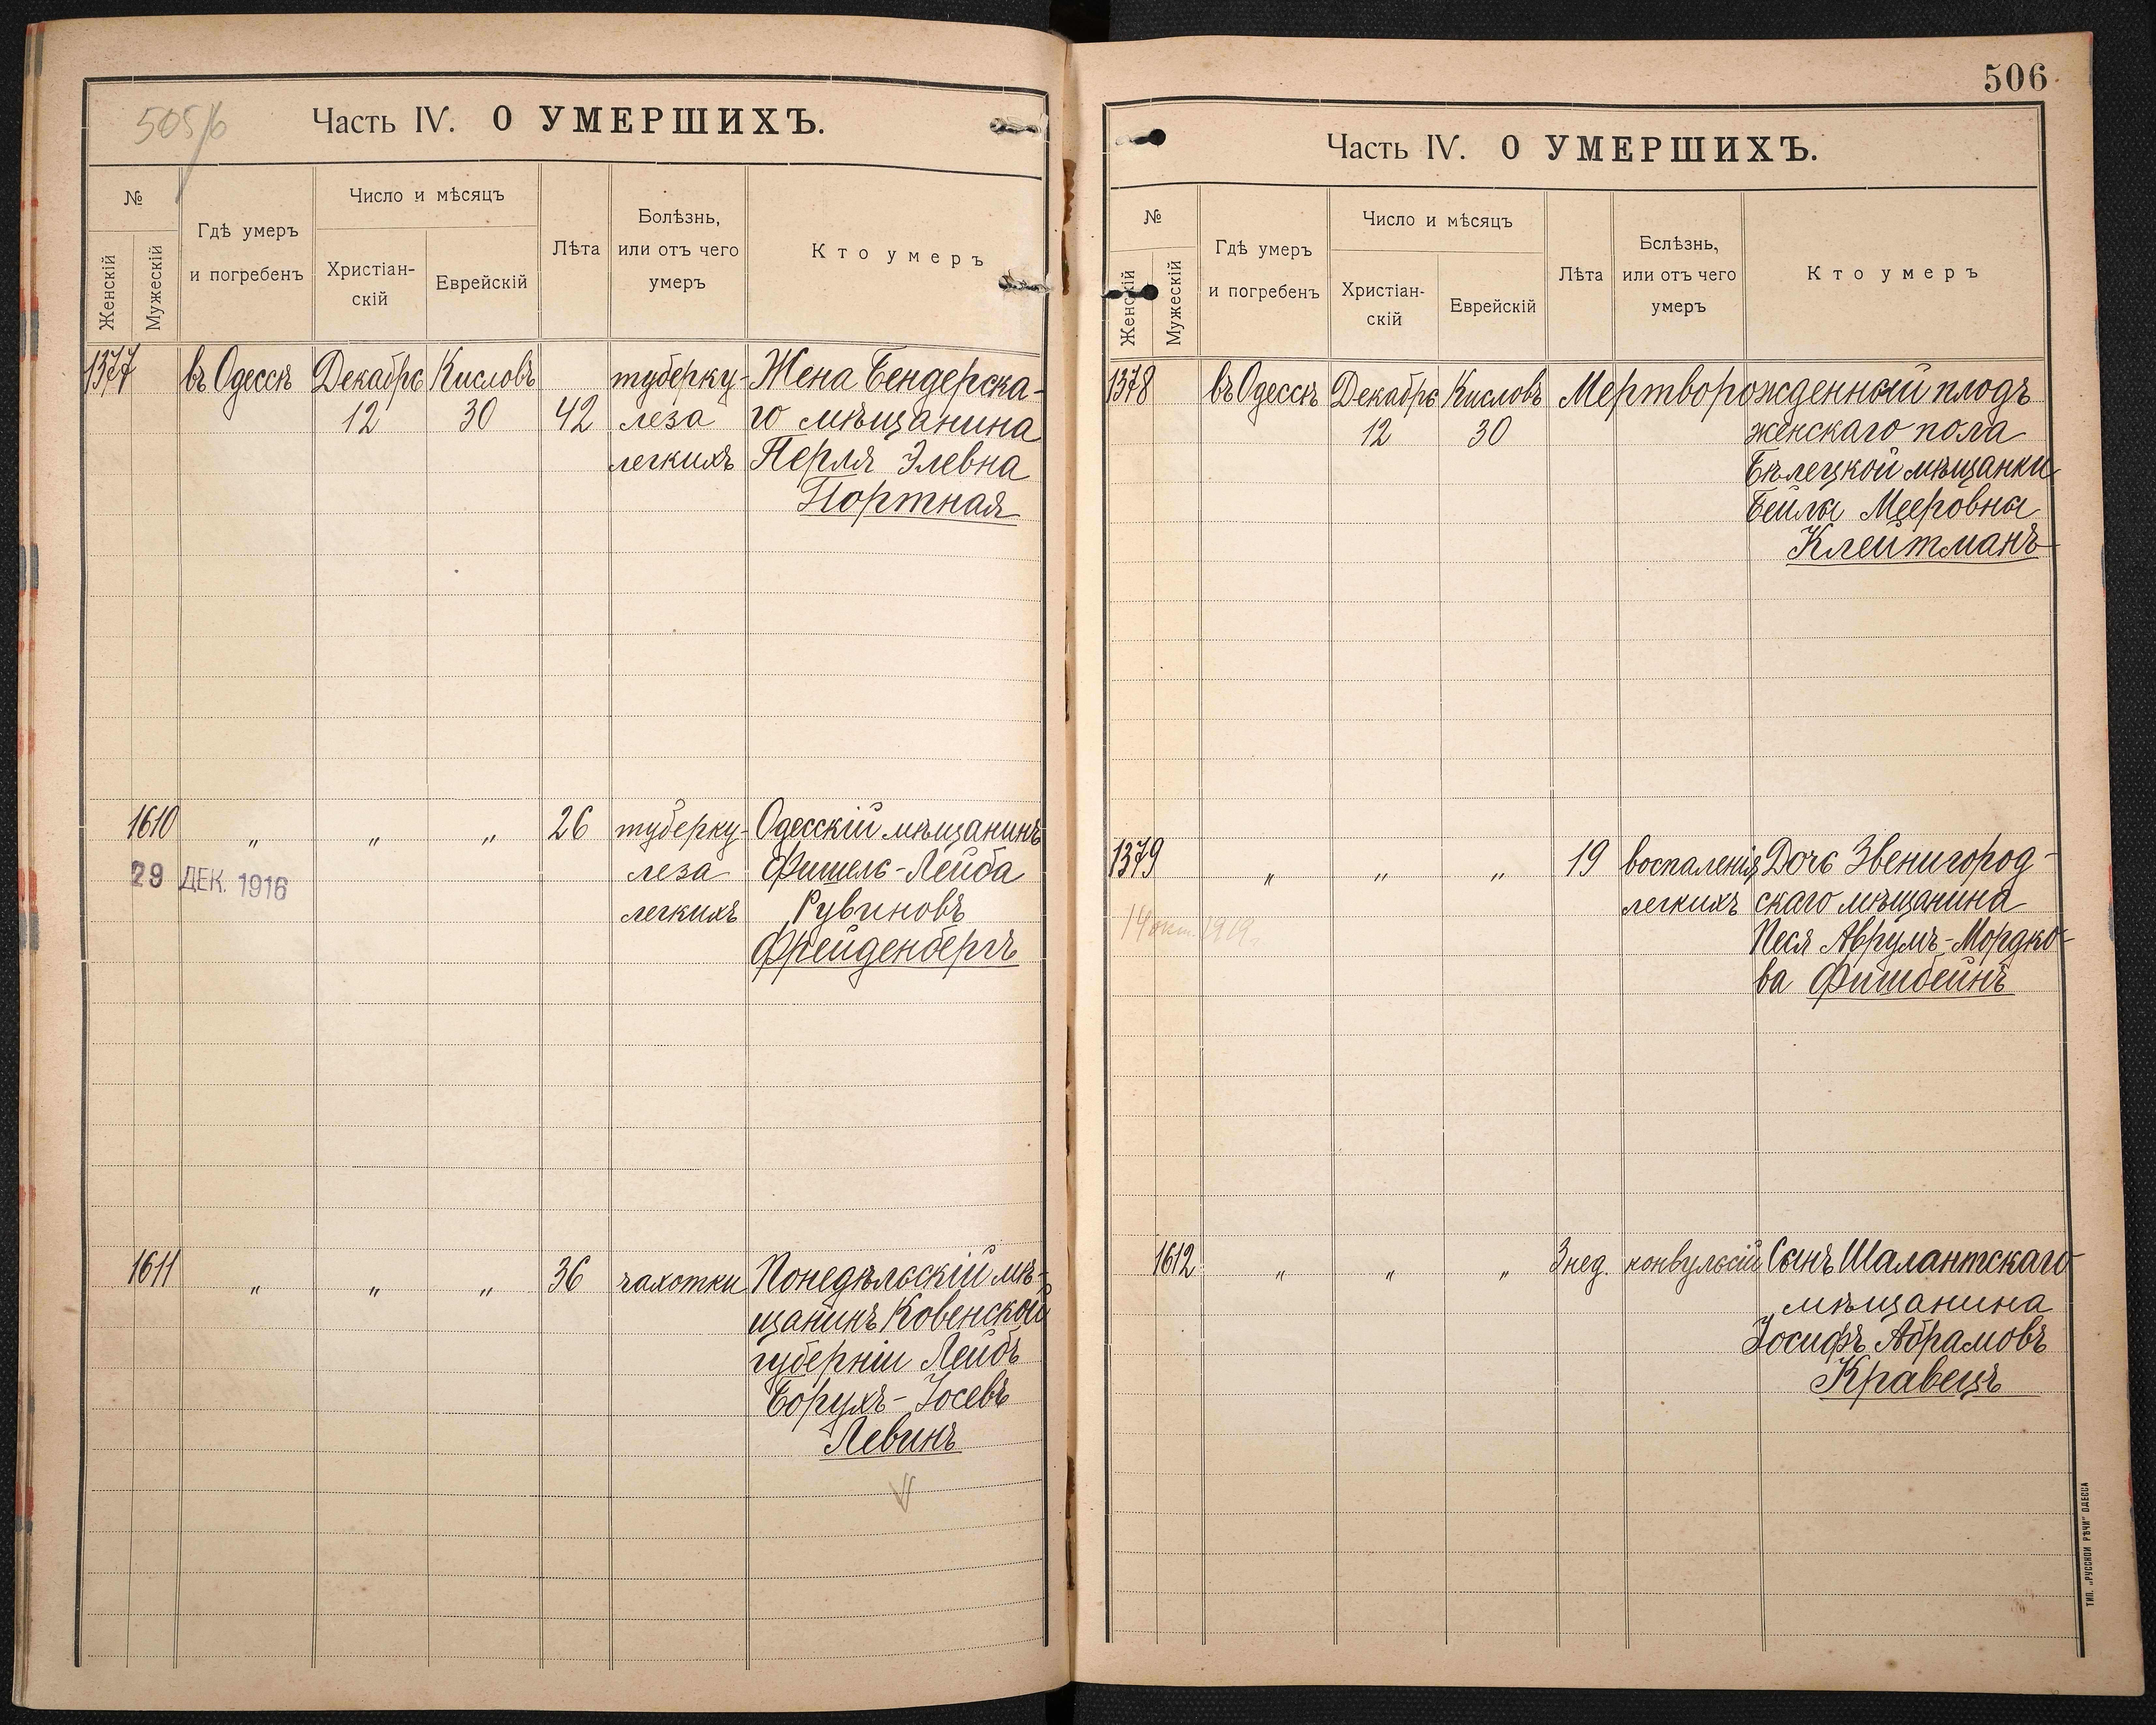 505/6
Часть IV. О УМЕРШИХЪ.
№
Женскій
Мужескій
Гдѣ умеръ
и погребенъ
Число и мѣсяцъ
Христіан-
скій
Еврейскій
Лѣта
Болѣзнь,
или отъ чего
умеръ
Кто умеръ
1377 въ Одессѣ Декабрь Кисловъ туберку- Жена Бендерска-
12 30 42 леза го мѣщанина
легкихъ Перля Элевна
Портная
1610 „ „ „ 26 туберку- Одесскій мѣщанинъ
29 ДЕК. 1916 леза Фишель-Лейба
легкихъ Рувиновъ
Фрейденбергъ
1611 „ „ „ 36 чахотки Понедѣльскій мѣ-
щанинъ Ковенской
губерніи Лейбъ
Борухъ-Іосевъ
Левинъ
506
Часть IV. О УМЕРШИХЪ.
№
Женскій
Мужескій
Гдѣ умеръ
и погребенъ
Число и мѣсяцъ
Христіан-
скій
Еврейскій
Лѣта
Бслѣзнь,
или отъ чего
умеръ
Кто умеръ
1378 въ Одессѣ Декабрь Кисловъ Мертворожденный плодъ
12 30 женскаго пола
Бѣлецкой мѣщанки
Бейлы Мееровны
Клейтманъ
1379 „ „ „ 19 воспаленія Дочь Звенигород-
легкихъ скаго мѣщанина
14 окт. 1919г.
Песя Аврумъ-Мордко-
ва Фишбейнъ
1612 „ „ „ 3 нед. конвульсій Сынъ Шалантскаго
мѣщанина
Іосифъ Абрамовъ
Кравецъ
ТИП. „РУССКОЙ РѢЧИ" ОДЕССА